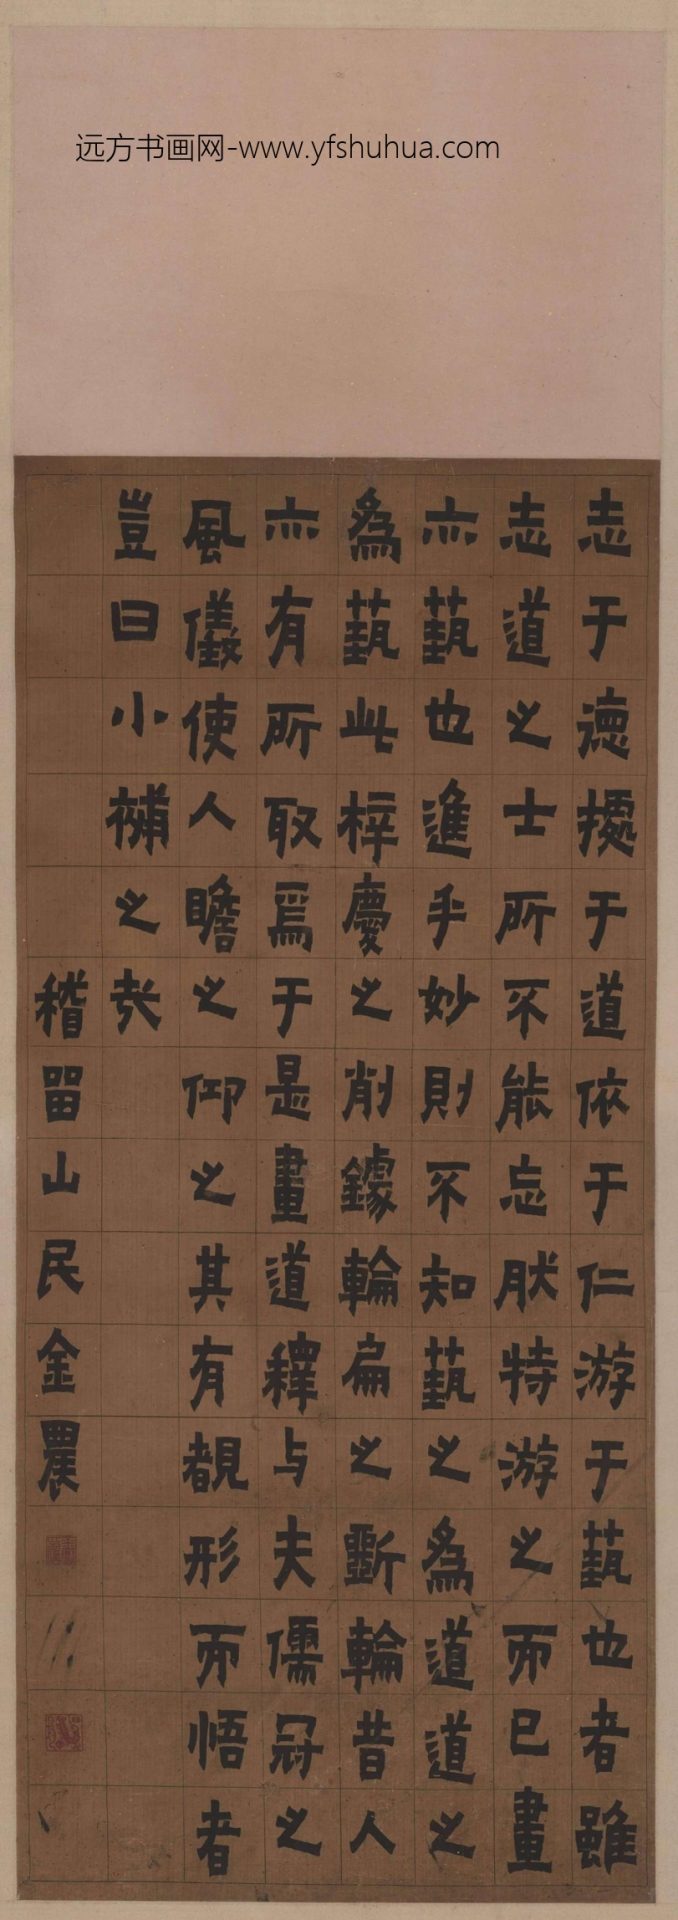 远方书画网-www.yfshuhua.com
志于德㩀于道依于仁游于藝也者雖
志道之士所不能忘肰特游之而已畫
亦藝也進乎妙則不知藝之為道道之
為藝此梓慶之削鐻輪扁之斲輪昔人
亦有所取焉于是畫道釋与夫儒冠之
風儀使人瞻之仰之其有覩形而悟者
豈曰小補之㢤
稽畱山民金農